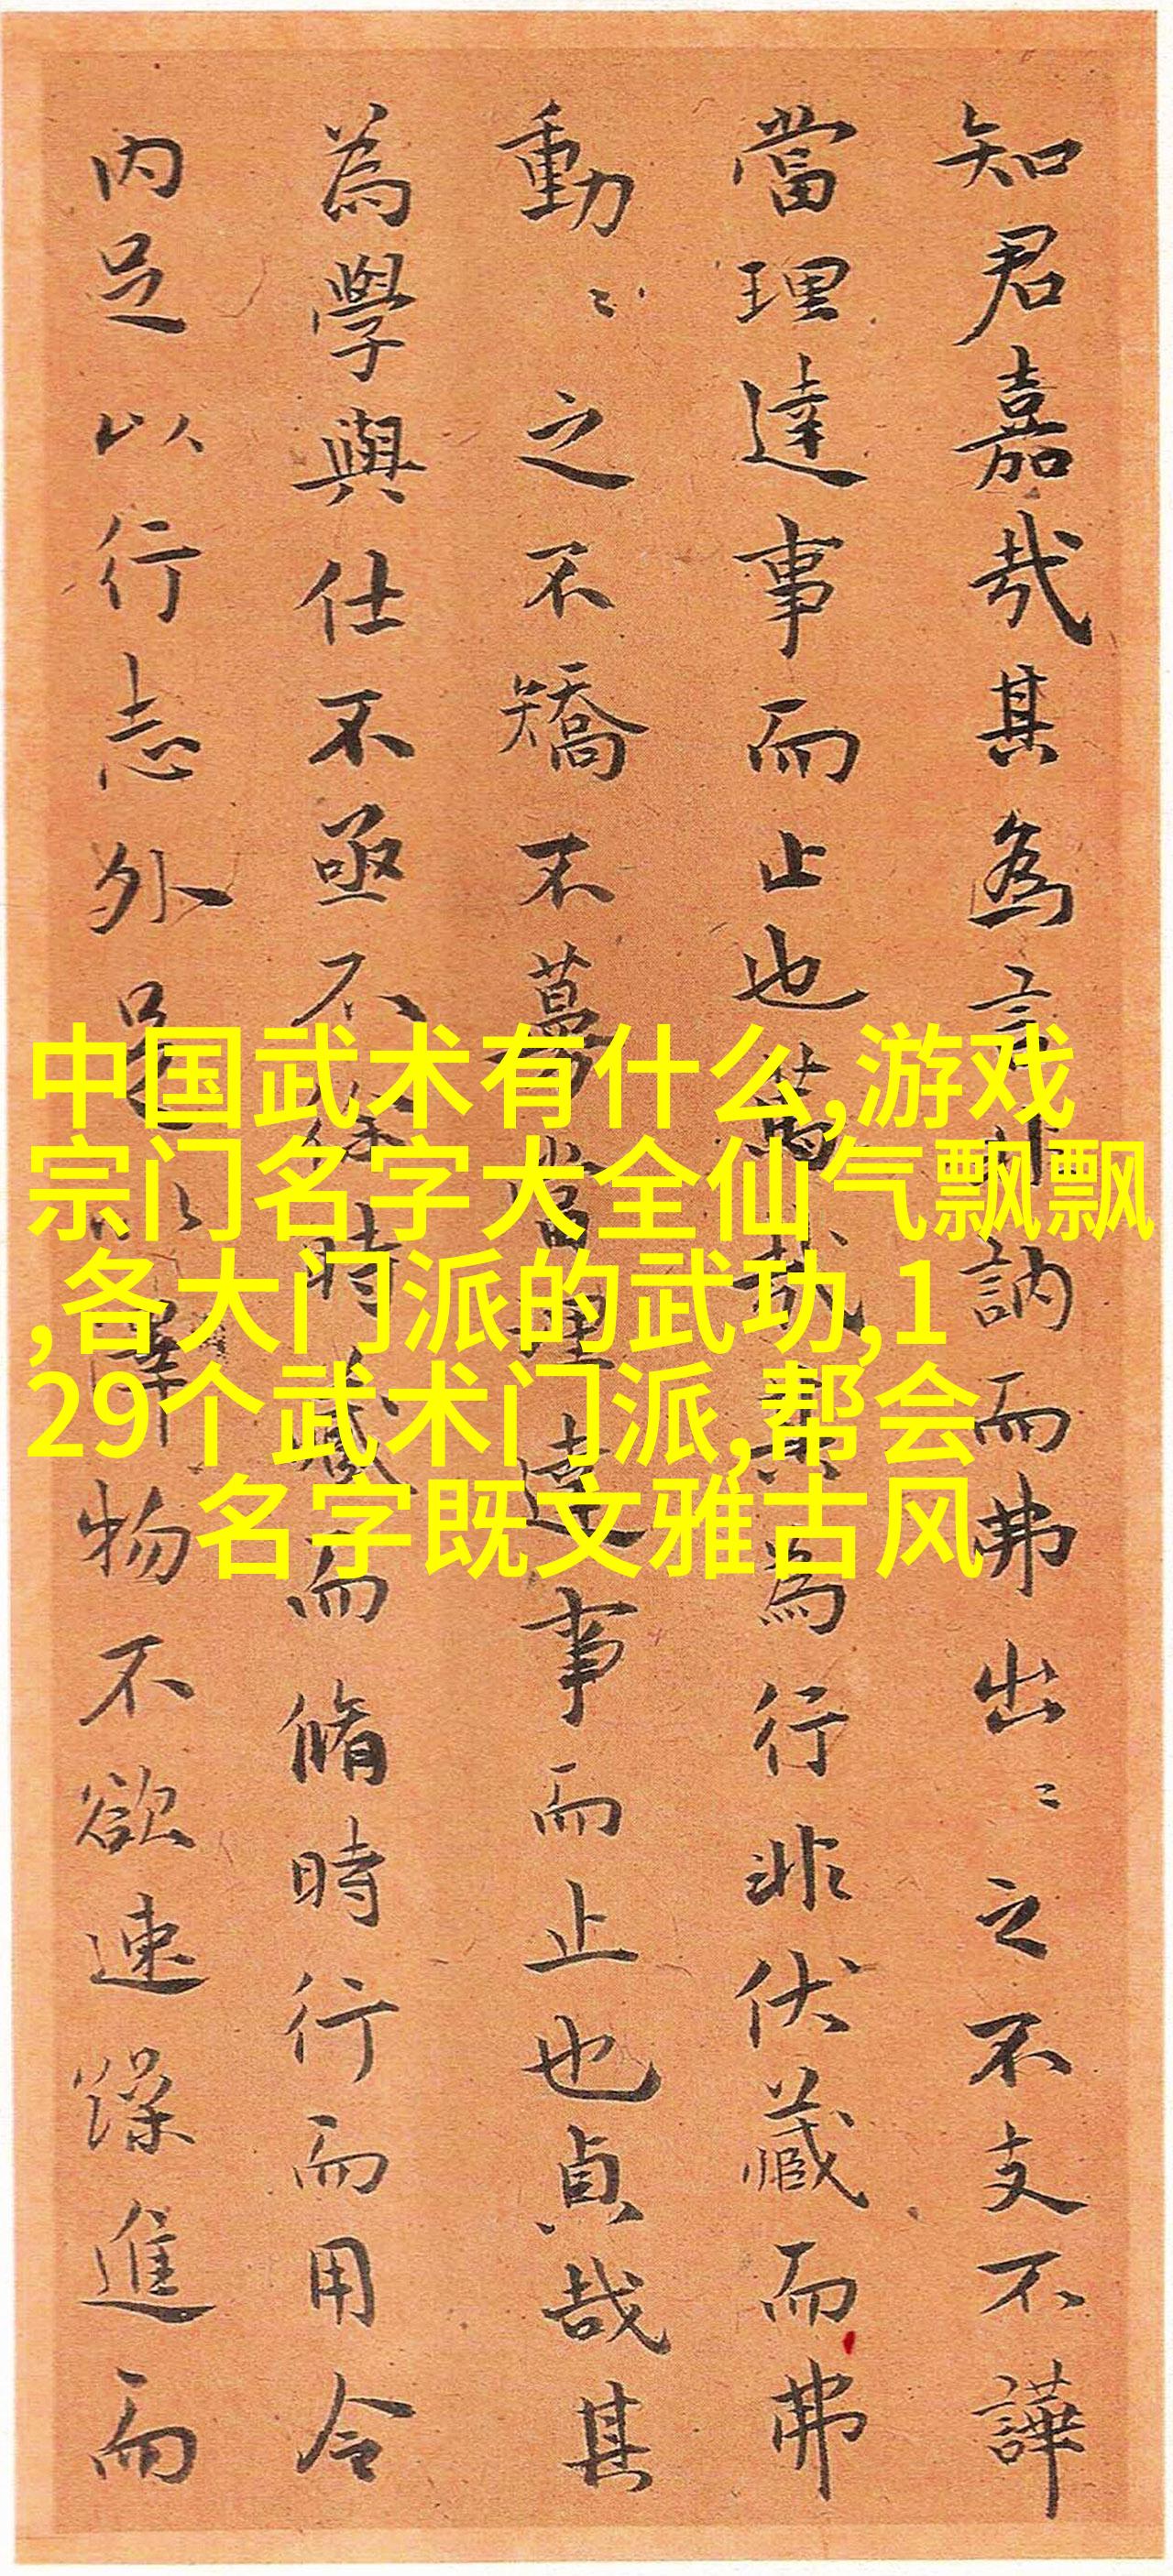 知君嘉哉其為言非訥而弗出〻之不支不譁
當理達事而止也萬哉其為行非伏藏而弗
動〻之不矯不蔓當理達事而止也貞哉其
為學與仕不亟不徐時藏而脩時行而用令
内足以行志外足以澤物不欲速躁進而
中国武术有什么,游戏
宗门名字大全仙气飘飘
,各大门派的武功,1
29个武术门派,帮会
名字既文雅古风